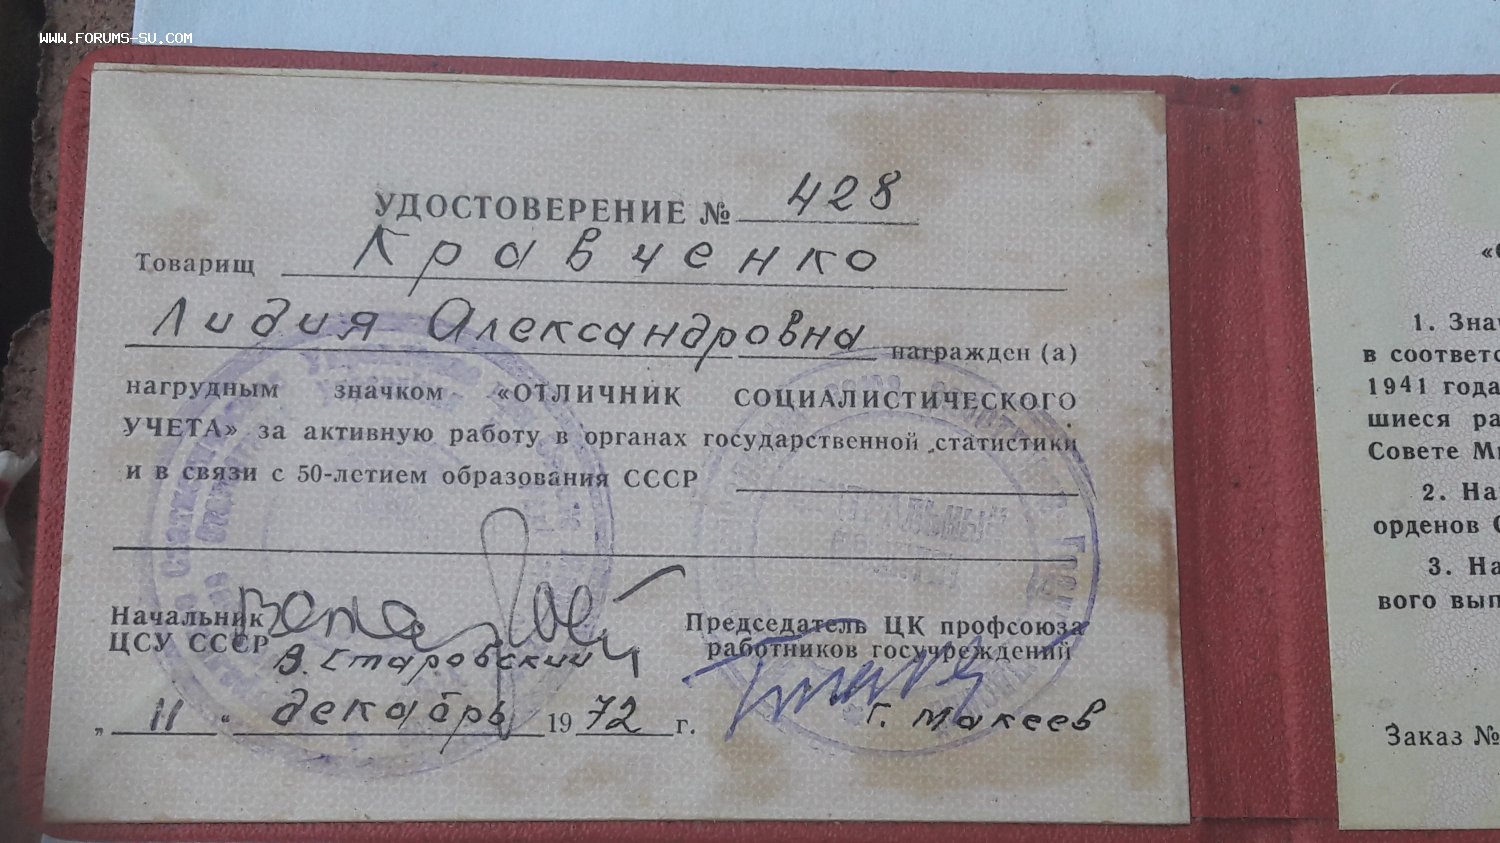 WWW.FORUMS-SU.COM
УДОСТОВЕРЕНИЕ № 428
Товарищ Кравченко
Лидия Александровна награжден (а)
нагрудным значком «ОТЛИЧНИК СОЦИАЛИСТИЧЕСКОГО
УЧЕТА» за активную работу в органах государственной статистики
и в связи с 50-летием образования СССР
Начальник
ЦСУ СССР
В. Старовский
Председатель ЦК профсоюза
работников госучреждений
Г. Макеев
„ 11 “ декабрь 1972 г.
1. Зна
в соответс
1941 года
шиеся ра
Совете Ми
2. На
орденов С
3. На
вого вып
Заказ №